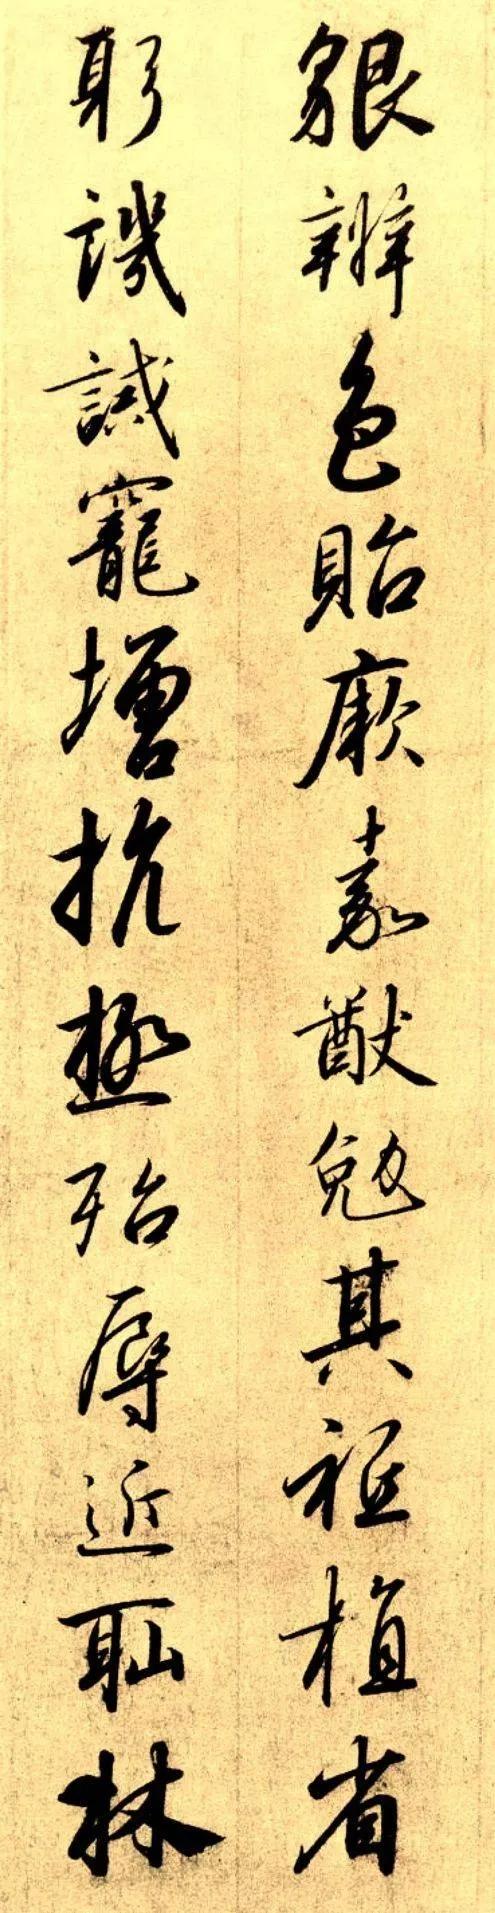 貌辨色貽厥嘉猷勉其祗植省
躬譏誡寵增抗極殆辱近恥林